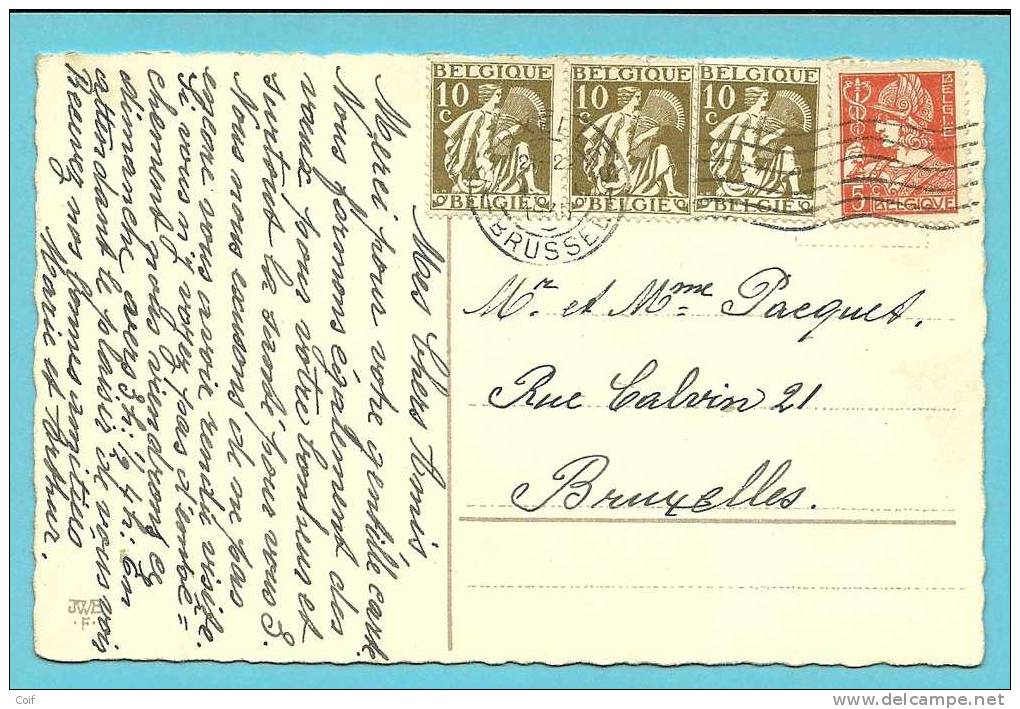 BELGIQUE
10
c
BELGIE
BELGIQUE
10
c
BELGIE
BELGIQUE
10
c
BELGIE
BELGIE
5
c
BELGIQUE
BRUSSEL
Mr et Mme Pacquet.
Rue Calvin 21
Bruxelles.
Mes Chers Amis
Merci pour votre gentille carte.
Nous formons également des
vœux pour votre bonheur et
surtout la santé pour vous 3.
Nous nous excusons de ne pas
vous avoir rendu visite.
Si vous n'y voyez pas d'embê=
chement nous viendrons
dimanche vers 3h 1/2 4h: En
attendant le plaisir de vous voir
Recevez nos bonnes amitiés
Marie et Arthur.
JWB
·F·
Coif
delcampe.net